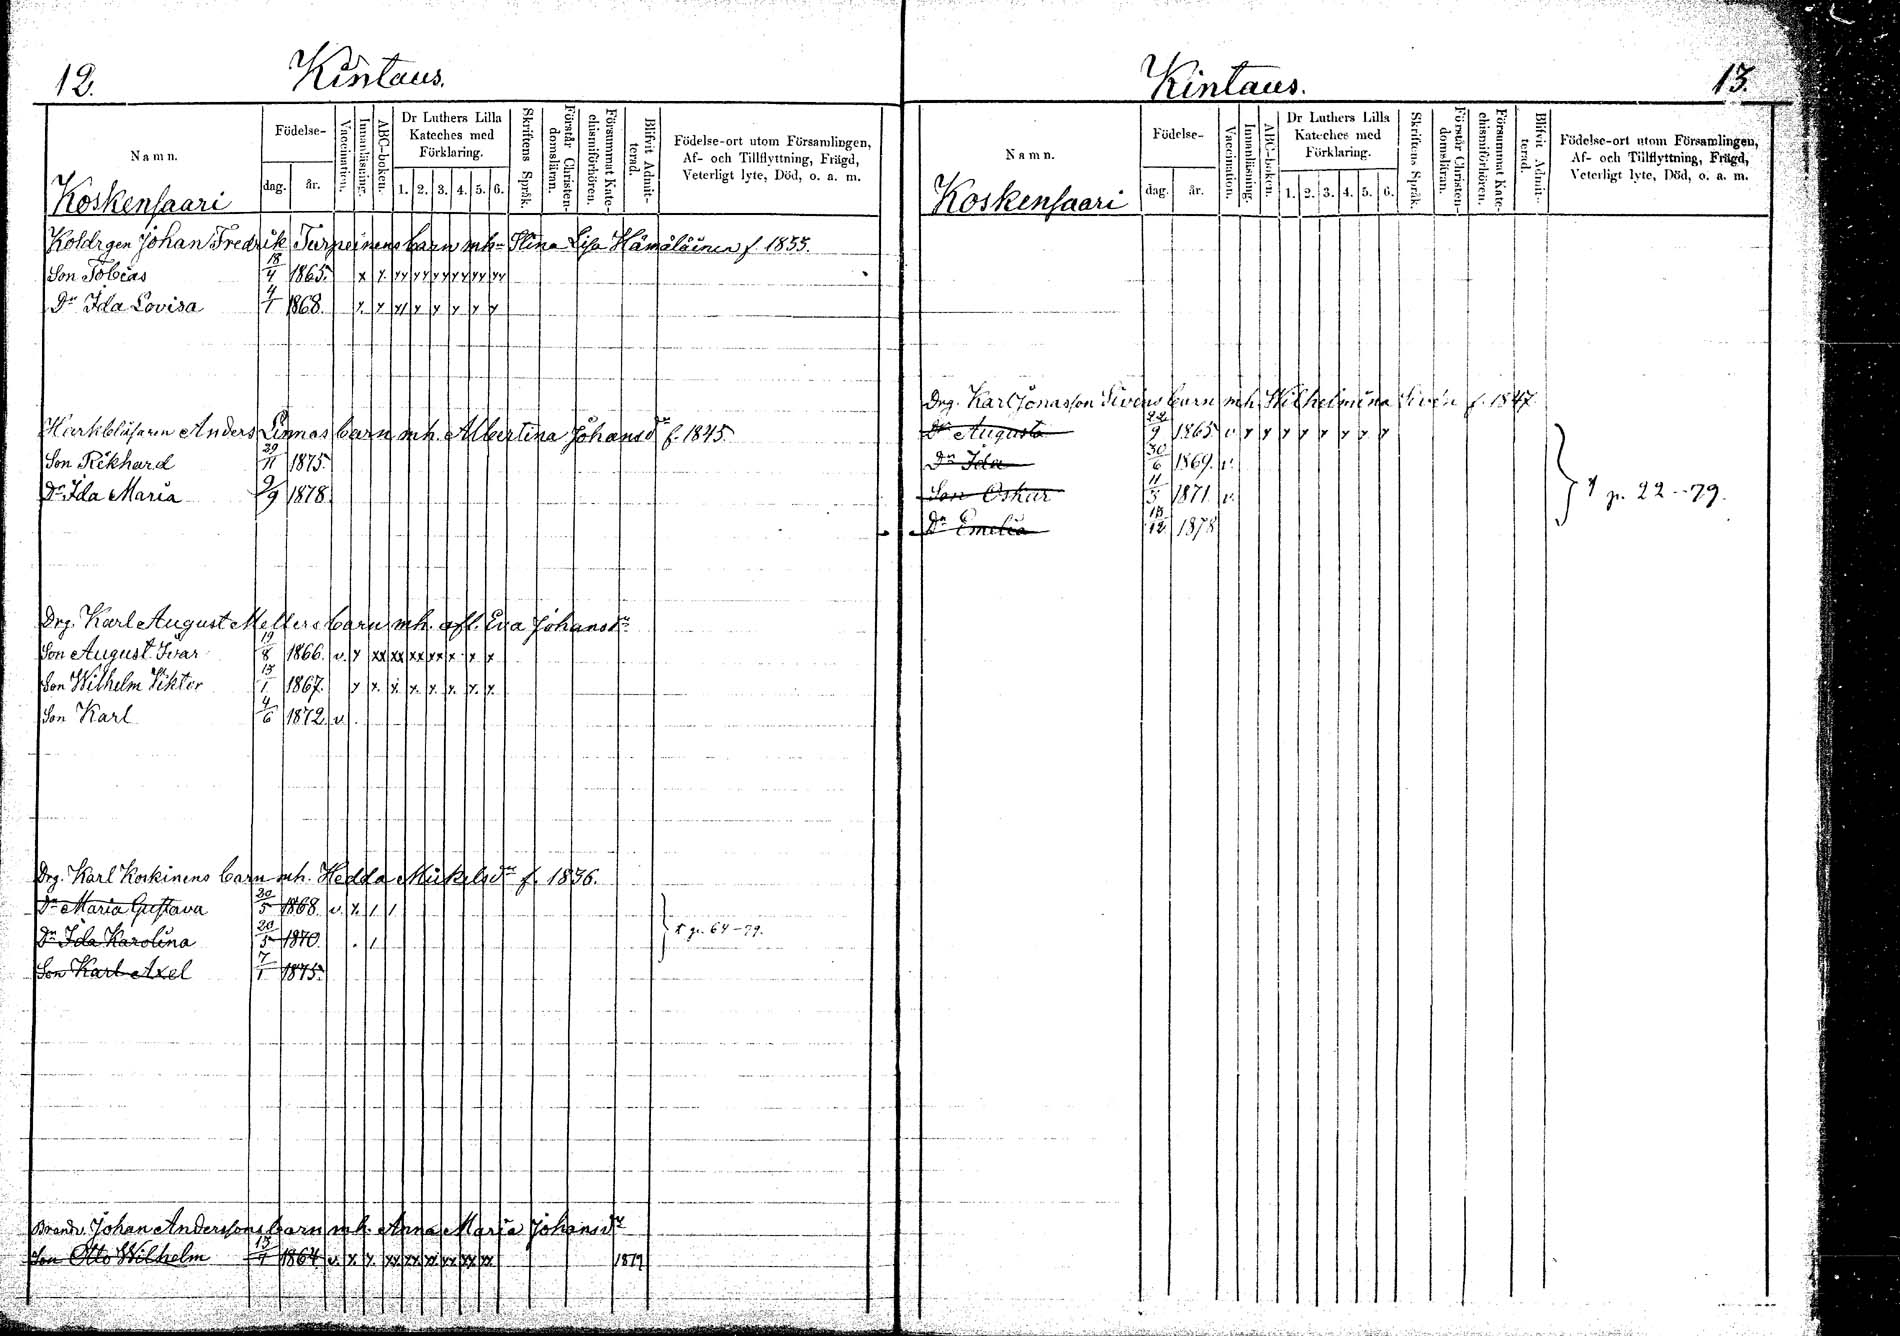 12.
Kintaus.
Namn.
Födelse-
dag.
år.
Vaccination.
Innanläsning.
ABC-boken.
Dr Luthers Lilla
Kateches med
Förklaring.
1. 2. 3. 4. 5. 6.
Skriftens Språk.
Förstår Christen-
domsläran.
Försummat Kate-
chismiförhören.
Blifvit Admit-
terad.
Födelse-ort utom Församlingen,
Af- och Tillflyttning, Frägd,
Veterligt lyte, Död, o. a. m.
Koskensaari
Johan Fredrik Turpeinens barn mh Stina Lisa Hämäläinen f. 1835.
Son Tobias 18/4 1865. x x xx xx xx xx xx xx
Dr Ida Lovisa 4/1 1868. x x x x x x x x
Anders Linnas barn mh. Albertina Johansdr f. 1845.
Son Rikhard 29/11 1875.
Dr Ida Maria 9/9 1878.
Drg. Karl August Mellers barn mh. afl. Eva Johansdr
Son August Ivar 19/8 1866. v. x xx xx xx xx x x x
Son Wilhelm Viktor 15/1 1867. x x. x. x. x. x. x. x.
Son Karl 4/6 1872. v.
Drg. Karl Koskinens barn mh. Hedda Mikelsdr f. 1836.
Dr Maria Gustava 20/5 1868 v. x. / /
Dr Ida Karolina 20/5 1870. . /
Son Karl Axel 7/1 1875.
p. 64-79.
Johan Anderssons barn mh. Anna Maria Johansdr
Son Otto Wilhelm 15/7 1864 v. x. x. xx xx xx xx xx xx 1879
Kintaus.
13.
Namn.
Födelse-
dag.
år.
Vaccination.
Innanläsning.
ABC-boken.
Dr Luthers Lilla
Kateches med
Förklaring.
1. 2. 3. 4. 5. 6.
Skriftens Språk.
Förstår Christen-
domsläran.
Försummat Kate-
chismiförhören.
Blifvit Admit-
terad.
Födelse-ort utom Församlingen,
Af- och Tillflyttning, Frägd,
Veterligt lyte, Död, o. a. m.
Koskensaari
Drg. Karl Jonasson Sivéns barn mh. Wilhelmina Sivén f. 1847
Dr Augusta 22/9 1865 v x x x x x x x x
Dr Ida 30/6 1869. v.
Son Oskar 11/3 1871 v.
Dr Emelia 13/12 1878
p. 22--79.